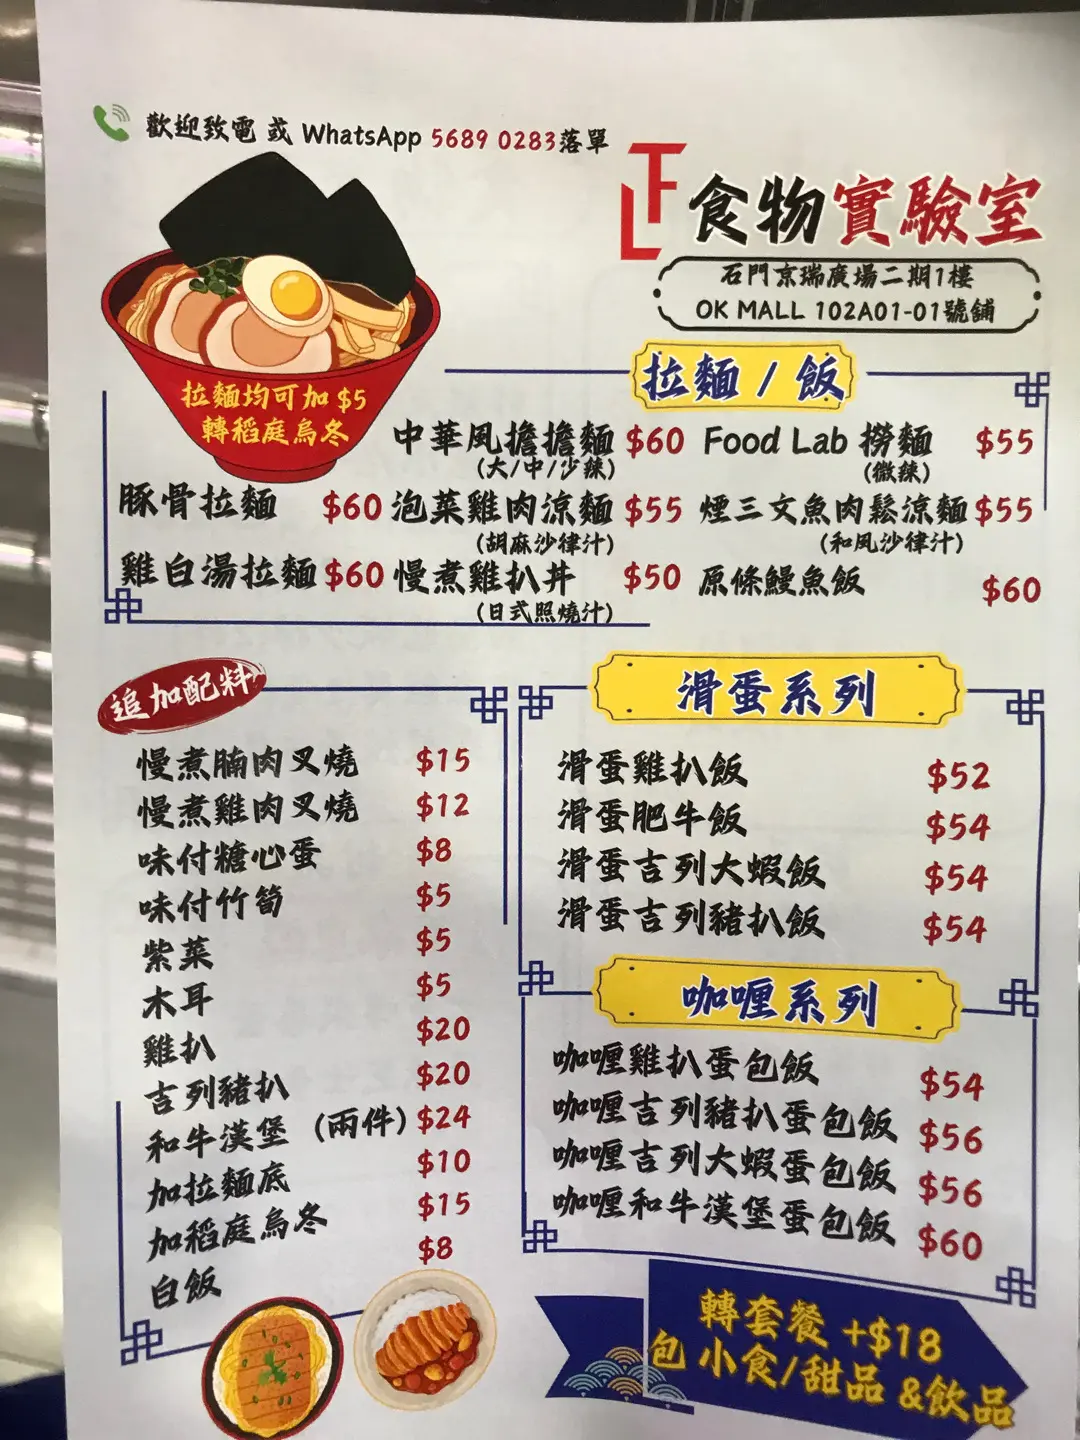 歡迎致電 或 WhatsApp 5689 0283落單
LF 食物實驗室
石門京瑞廣場二期1樓
OK MALL 102A01-01號舖
拉麵均可加 $5
轉稻庭烏冬
拉麵 / 飯
中華風擔擔麵 $60
(大/中/少辣)
Food Lab 撈麵 $55
(微辣)
豚骨拉麵 $60
泡菜雞肉涼麵 $55
(胡麻沙律汁)
煙三文魚肉鬆涼麵 $55
(和風沙律汁)
雞白湯拉麵 $60
慢煮雞扒丼 $50
(日式照燒汁)
原條鰻魚飯 $60
追加配料
慢煮腩肉叉燒 $15
慢煮雞肉叉燒 $12
味付糖心蛋 $8
味付竹筍 $5
紫菜 $5
木耳 $5
雞扒 $20
吉列豬扒 $20
和牛漢堡 (兩件) $24
加拉麵底 $10
加稻庭烏冬 $15
白飯 $8
滑蛋系列
滑蛋雞扒飯 $52
滑蛋肥牛飯 $54
滑蛋吉列大蝦飯 $54
滑蛋吉列豬扒飯 $54
咖喱系列
咖喱雞扒蛋包飯 $54
咖喱吉列豬扒蛋包飯 $56
咖喱吉列大蝦蛋包飯 $56
咖喱和牛漢堡蛋包飯 $60
轉套餐 +$18
包 小食/甜品 &飲品